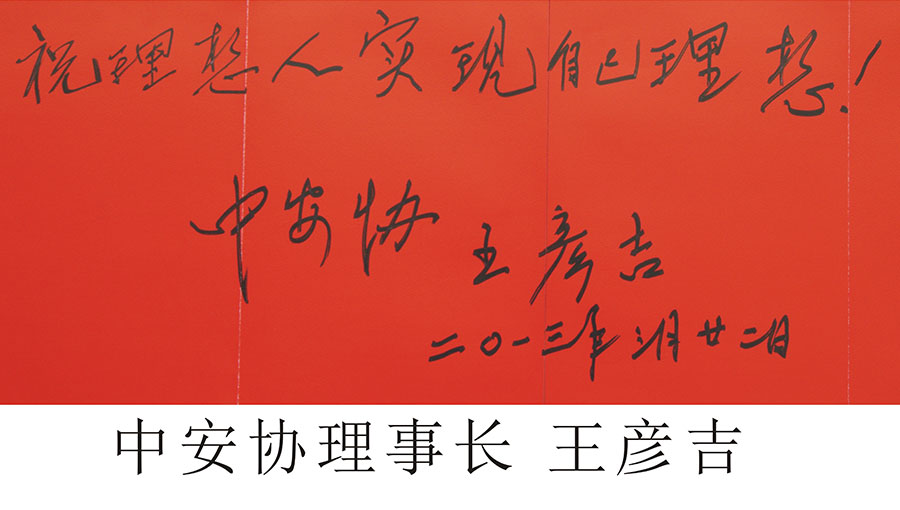 祝理想人实现自己理想！
中安协 王彦吉
二〇一三年三月廿二日
中安协理事长 王彦吉